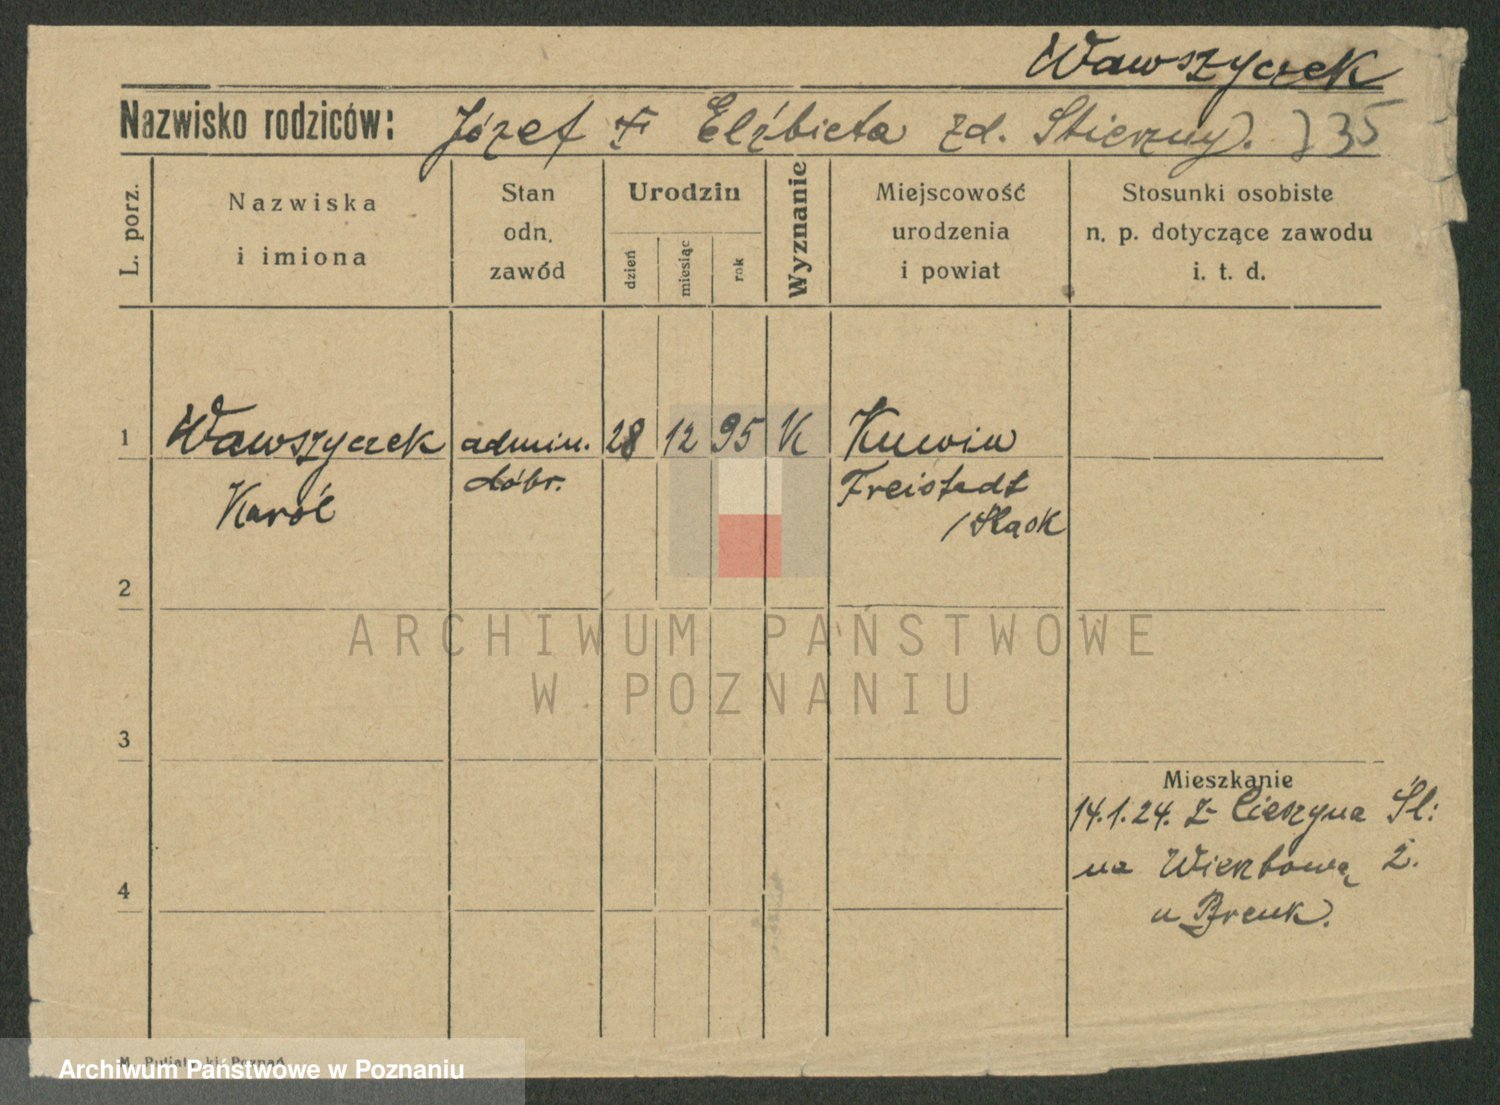 Wawszyczek
Nazwisko rodziców: Józef + Elżbieta zd. 35
L. porz.
Nazwiska
i imiona
Stan
odn.
zawód
Urodzin
dzień
miesiąc
rok
Wyznanie
Miejscowość
urodzenia
i powiat
Stosunki osobiste
n. p. dotyczące zawodu
i. t. d.
1 Wawszyczek admin. 28 12 95 K
Karól dóbr. Freistadt
/Śląsk
2
ARCHIWUM PAŃSTWOWE
W POZNANIU
3
Mieszkanie
14.1.24. z Cieszyna Śl:
na Wierzbową 2.
4
u Brenk.
Poznań
Archiwum Państwowe w Poznaniu